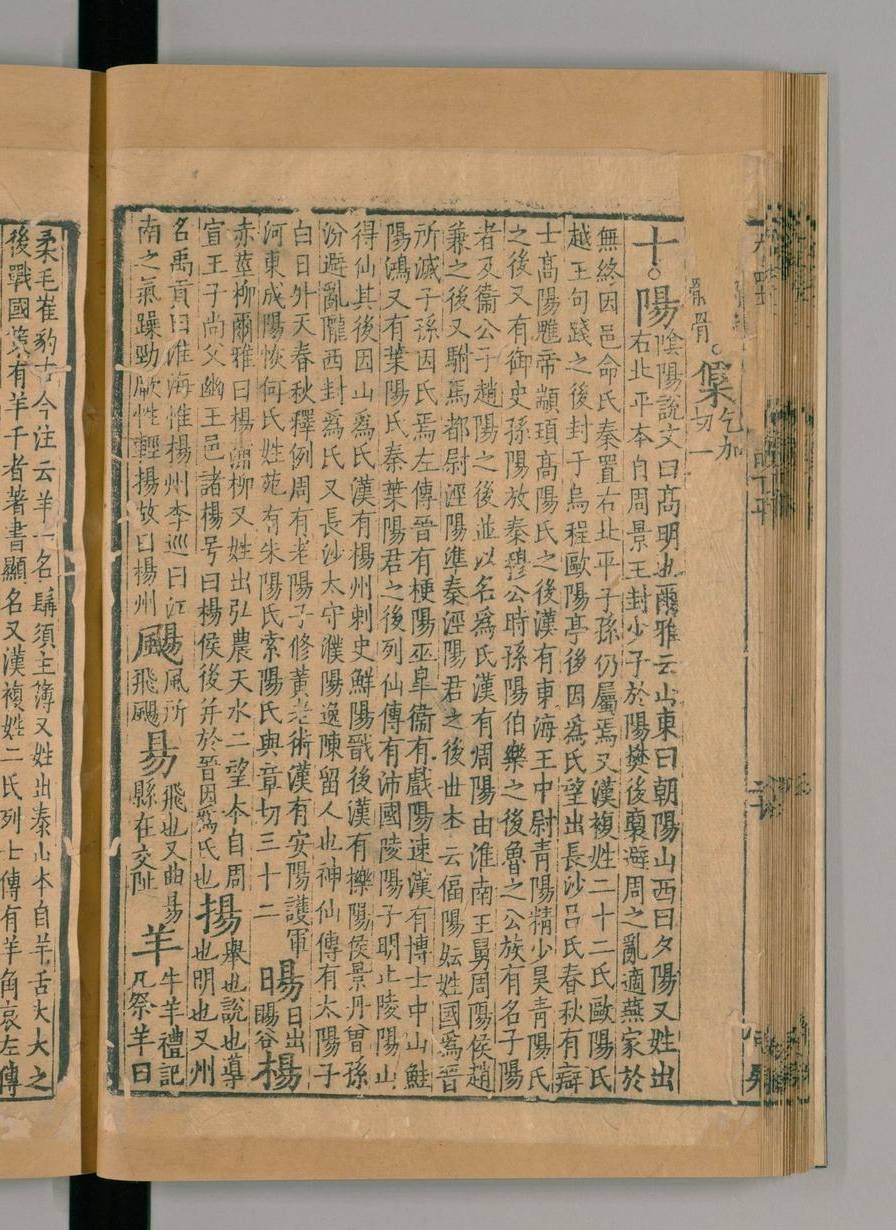 骱骨。㒓乞加切一
十○陽陰陽說文曰高明也爾雅云山東曰朝陽山西曰夕陽又姓出
右北平本自周景王封少子於陽樊後裔避周之亂適燕家於
無終因邑命氏秦置右北平子孫仍屬焉又漢複姓二十二氏歐陽氏
越王句踐之後封于烏程歐陽亭後因爲氏望出長沙呂氏春秋有辯
士髙陽魋帝顓頊髙陽氏之後漢有東海王中尉青陽精少昊青陽氏
之後又有御史孫陽放秦穆公時孫陽伯樂之後魯之公族有名子陽
者及衞公子趙陽之後並以名爲氏漢有周陽由淮南王舅周陽侯趙
兼之後又駙馬都尉涇陽準秦涇陽君之後世本云偪陽妘姓國爲晉
所滅子孫因氏焉左傳晉有梗陽巫臯衞有戲陽速漢有博士中山鮭
陽鴻又有葉陽氏秦葉陽君之後列仙傳有沛國陵陽子明止陵陽山
得仙其後因山爲氏漢有楊州刺史鮮陽戩後漢有櫟陽侯景丹曾孫
汾避亂隴西封爲氏又長沙太守濮陽逸陳留人也神仙傳有太陽子
白日升天春秋釋例周有老陽子修黃老術漢有安陽護軍
河東成陽恢何氏姓苑有朱陽氏索陽氏與章切三十二暘日出暘谷楊
赤莖柳爾雅曰楊蒲柳又姓出弘農天水二望本自周
宣王子尚父幽王邑諸楊号曰楊侯後并於晉因爲氏也揚舉也說也導也明也又州
名禹貢曰淮海惟楊州李巡曰江
南之氣躁勁厥性輕揚故曰楊州颺風所飛颺昜飛也又曲昜縣在交阯羊牛羊禮記凡祭羊曰
柔毛崔豹古今注云羊一名髯須主簿又姓出泰山本自羊舌大夫之
後戰國策有羊千者著書顯名又漢複姓二氏列士傳有羊角哀左傳